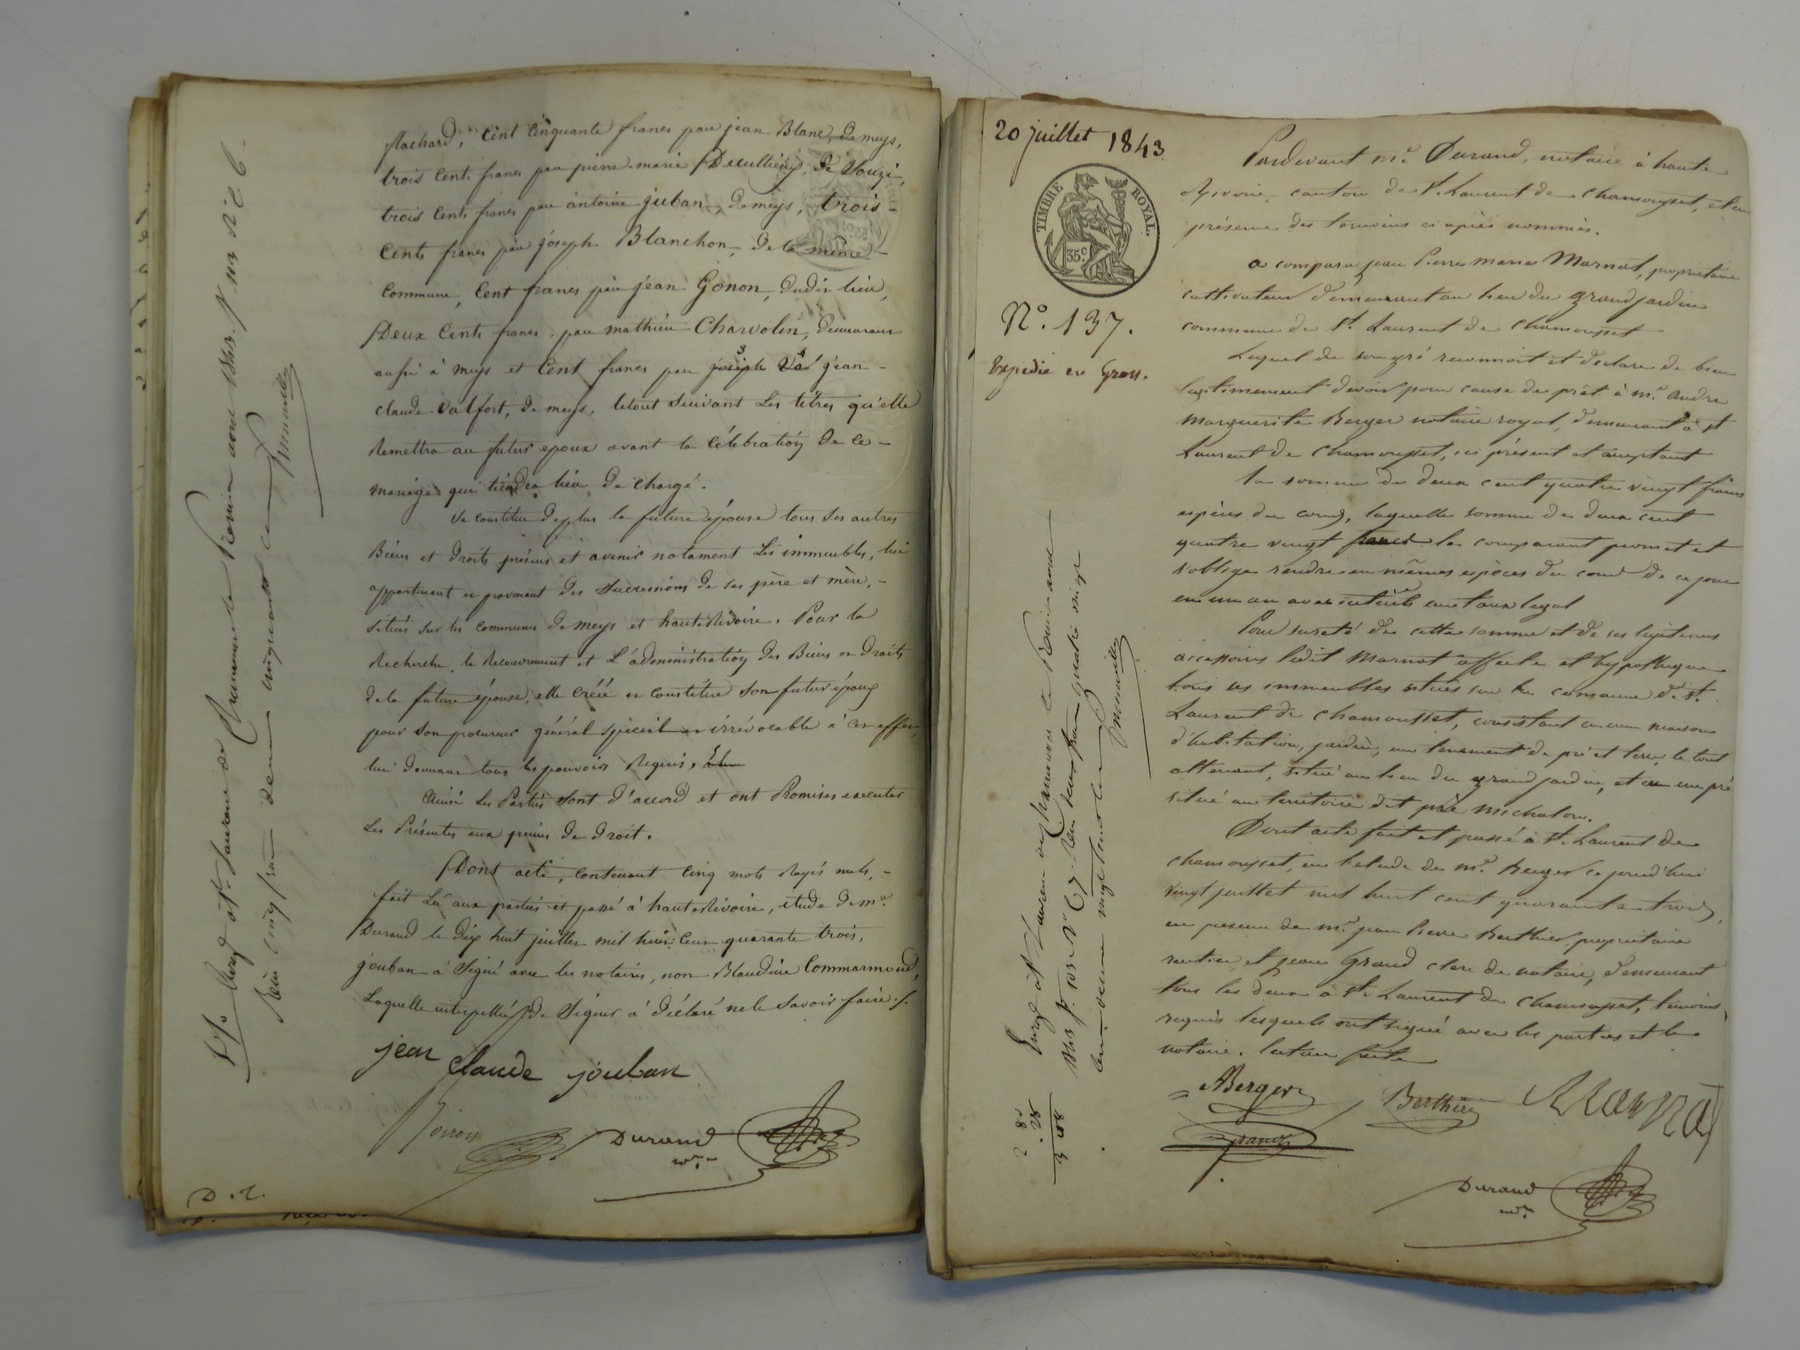 flachard, Cent Cinquante francs par jean Blanc, de meys,
trois Cents francs par pierre-marie Decullieux, de Souzi,
trois Cents francs par antoine juban, de meys, trois
Cents francs par joseph Blanchon, de la même
Commune, Cent francs par jean Gonon, dudit lieu,
Deux Cents francs par mathieu Charvolin, demeurant
aussi à meys et Cent francs par joseph jean
claude Valfort, de meys, letout Suivant Les titres qu'elle
Remettra au futur epoux avant la Célébration De ce
mariage qui tiendra lieu De chargé.
Se constitue de plus la future épouse tous Ses autres
Biens et droits présens et avenir notament Les immeubles, lui
appartenant et provenant des Successions De Ses père et mère,
Situés Sur les Communes de meys et hauterivoire. Pour la
Recherche, le Recouvrement et L'administration Des Biens et Droits
de la future épouse, elle Créé et Constitue Son futur époux
pour Son procureur général Spécial et irrévocable à Cet effet,
lui donnant tous les pouvoirs Requis.
Ainsi Les Parties Sont d'accord et ont Promises executer
Les Présentes aux peines De droit.
Dont acte, contenant Cinq mots Rayés nuls,
fait Lu aux parties et passé à hauterivoire, étude de Me.
Durand le dix huit juillet mil huit Cent quarante trois,
jouban à Signé avec les notaires, non Blandine Commarmond,
Laquelle interpellée de Signer à déclaré ne le Savoir faire ./.
jean claude jouban
Durand
D. 2.
20 juillet 1843
TIMBRE ROYAL.
35 c.
No. 137.
Expedié en Gross.
Pardevant me. Durand, notaire à haute
Rivoire, canton de st. Laurent de Chamousset, et en
présence des temoins ci après nommés.
a comparu jean Pierre Marie Marnat, propriétaire
cultivateur demeurant au lieu du grand jardin
commune de st. Laurent de Chamousset
Lequel de son gré reconnoit et declare de bien
legitimement devoir pour cause de prêt à mr. andré
Marguerite Berger notaire royal, demeurant à st
Laurent de Chamousset, ici présent et acceptant
la somme de deux cent quatre vingt francs
espèces du cours, laquelle somme de deux cent
quatre vingt francs le comparant promet et
s'oblige rendre en mêmes espèces du cours de ce jour
en un an avec intérêts au taux legal
Pour sureté de cette somme et de ses légitimes
accessoires ledit Marnat affecte et hypothèque
tous ses immeubles situés sur la commune de st.
Laurent de Chamousset, consistant en une maison
d'habitation, jardin, un tenement de pré et terre, le tout
attenant, situé au lieu du grand jardin, et en un pré
situé au territoire dit pré Michalon.
Dont acte fait et passé à st. Laurent de
Chamousset, en l'etude de me. Berger ce jourd'hui
vingt juillet mil huit cent quarante trois,
en presence de mr. jean Pierre Berthier, propriétaire
rentier et jean Grand clerc de notaire, demeurant
tous les deux à st. Laurent de Chamousset, temoins
requis lesquels ont signé avec les parties et le
notaire. lecture faite
ABerger
Berthier
Marnat
Grand
Durand